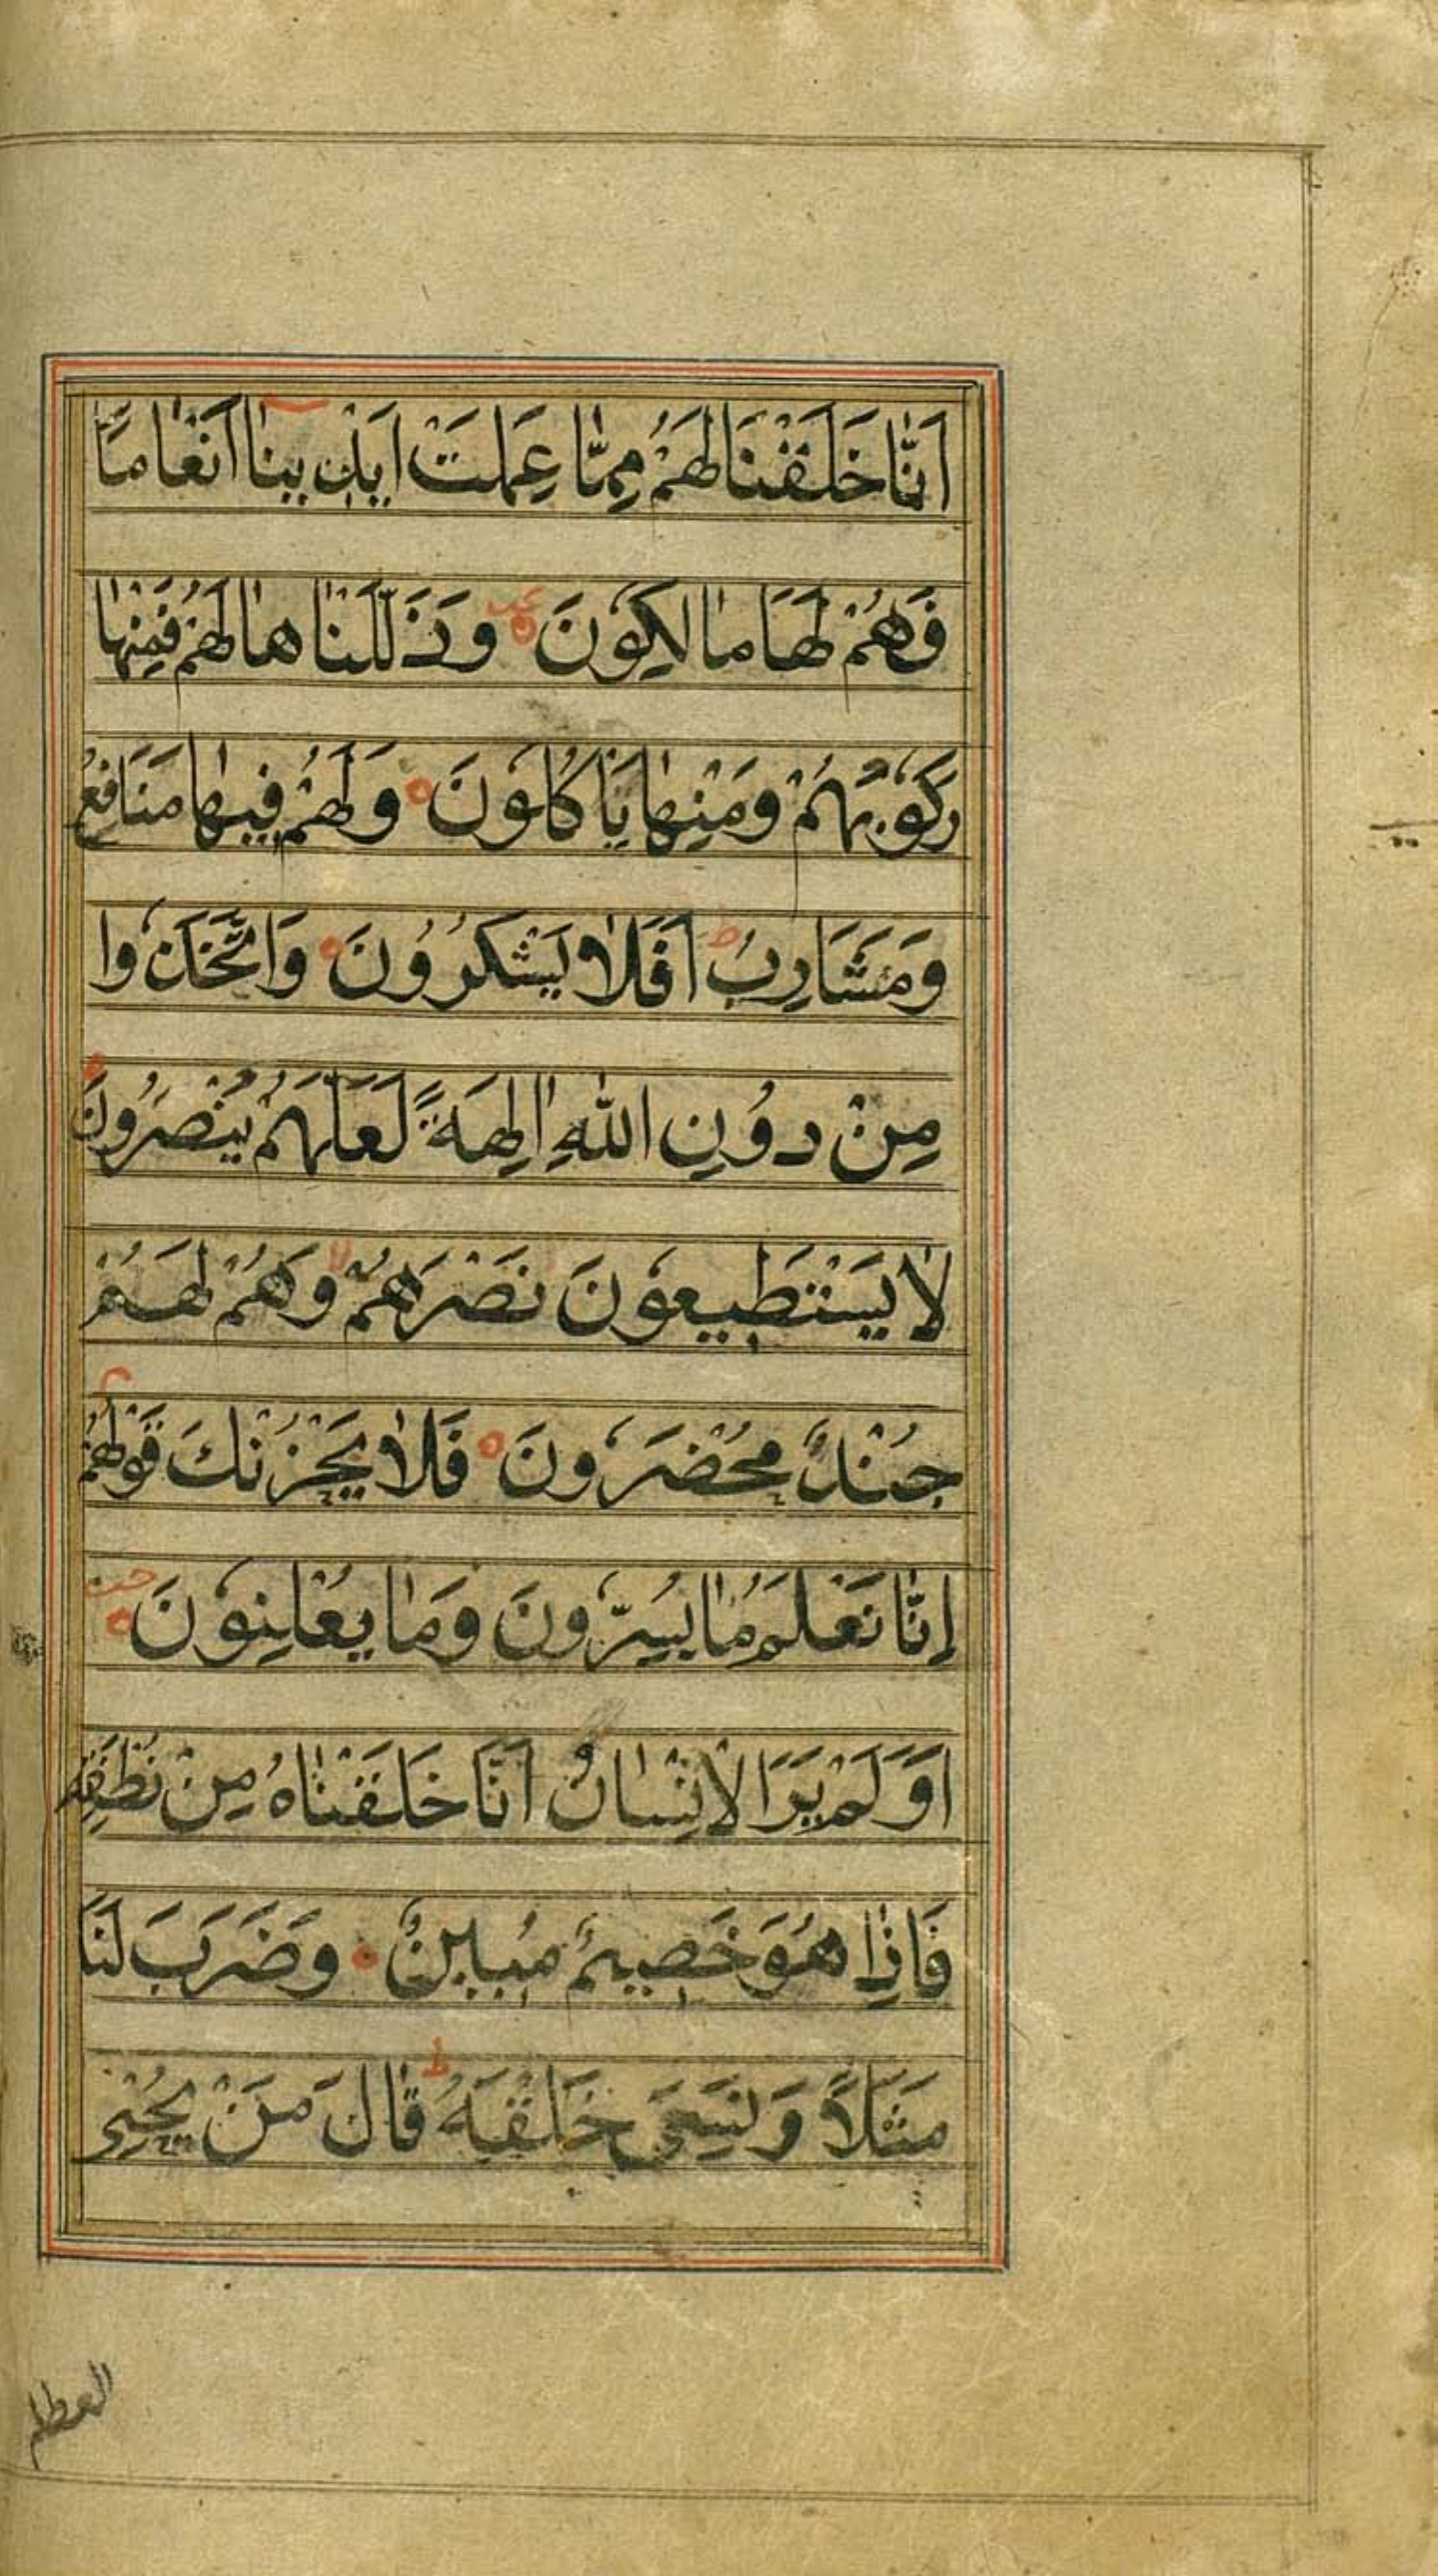 اَنَّا خَلَقْنَا لَهُمْ مِمَّا عَمِلَتْ اَيْدِينَا اَنْعَامًا
فَهُمْ لَهَا مَالِكُونَ وَذَلَّلْنَاهَا لَهُمْ فَمِنْهَا
رَكُوبُهُمْ وَمِنْهَا يَاْكُلُونَ وَلَهُمْ فِيهَا مَنَافِعُ
وَمَشَارِبُ ط اَفَلَا يَشْكُرُونَ وَاتَّخَذُوا
مِنْ دُونِ اللّٰهِ اٰلِهَةً لَعَلَّهُمْ يُنْصَرُونَ
لَا يَسْتَطِيعُونَ نَصْرَهُمْ لا وَهُمْ لَهُمْ
جُنْدٌ مُحْضَرُونَ فَلَا يَحْزُنْكَ قَوْلُهُمْ م
اِنَّا نَعْلَمُ مَا يُسِرُّونَ وَمَا يُعْلِنُونَ
اَوَلَمْ يَرَ الْاِنْسَانُ اَنَّا خَلَقْنَاهُ مِنْ نُطْفَةٍ
فَاِذَا هُوَ خَصِيمٌ مُبِينٌ وَضَرَبَ لَنَا
مَثَلًا وَنَسِىَ خَلْقَهُ ط قَالَ مَنْ يُحْيِى
العظام